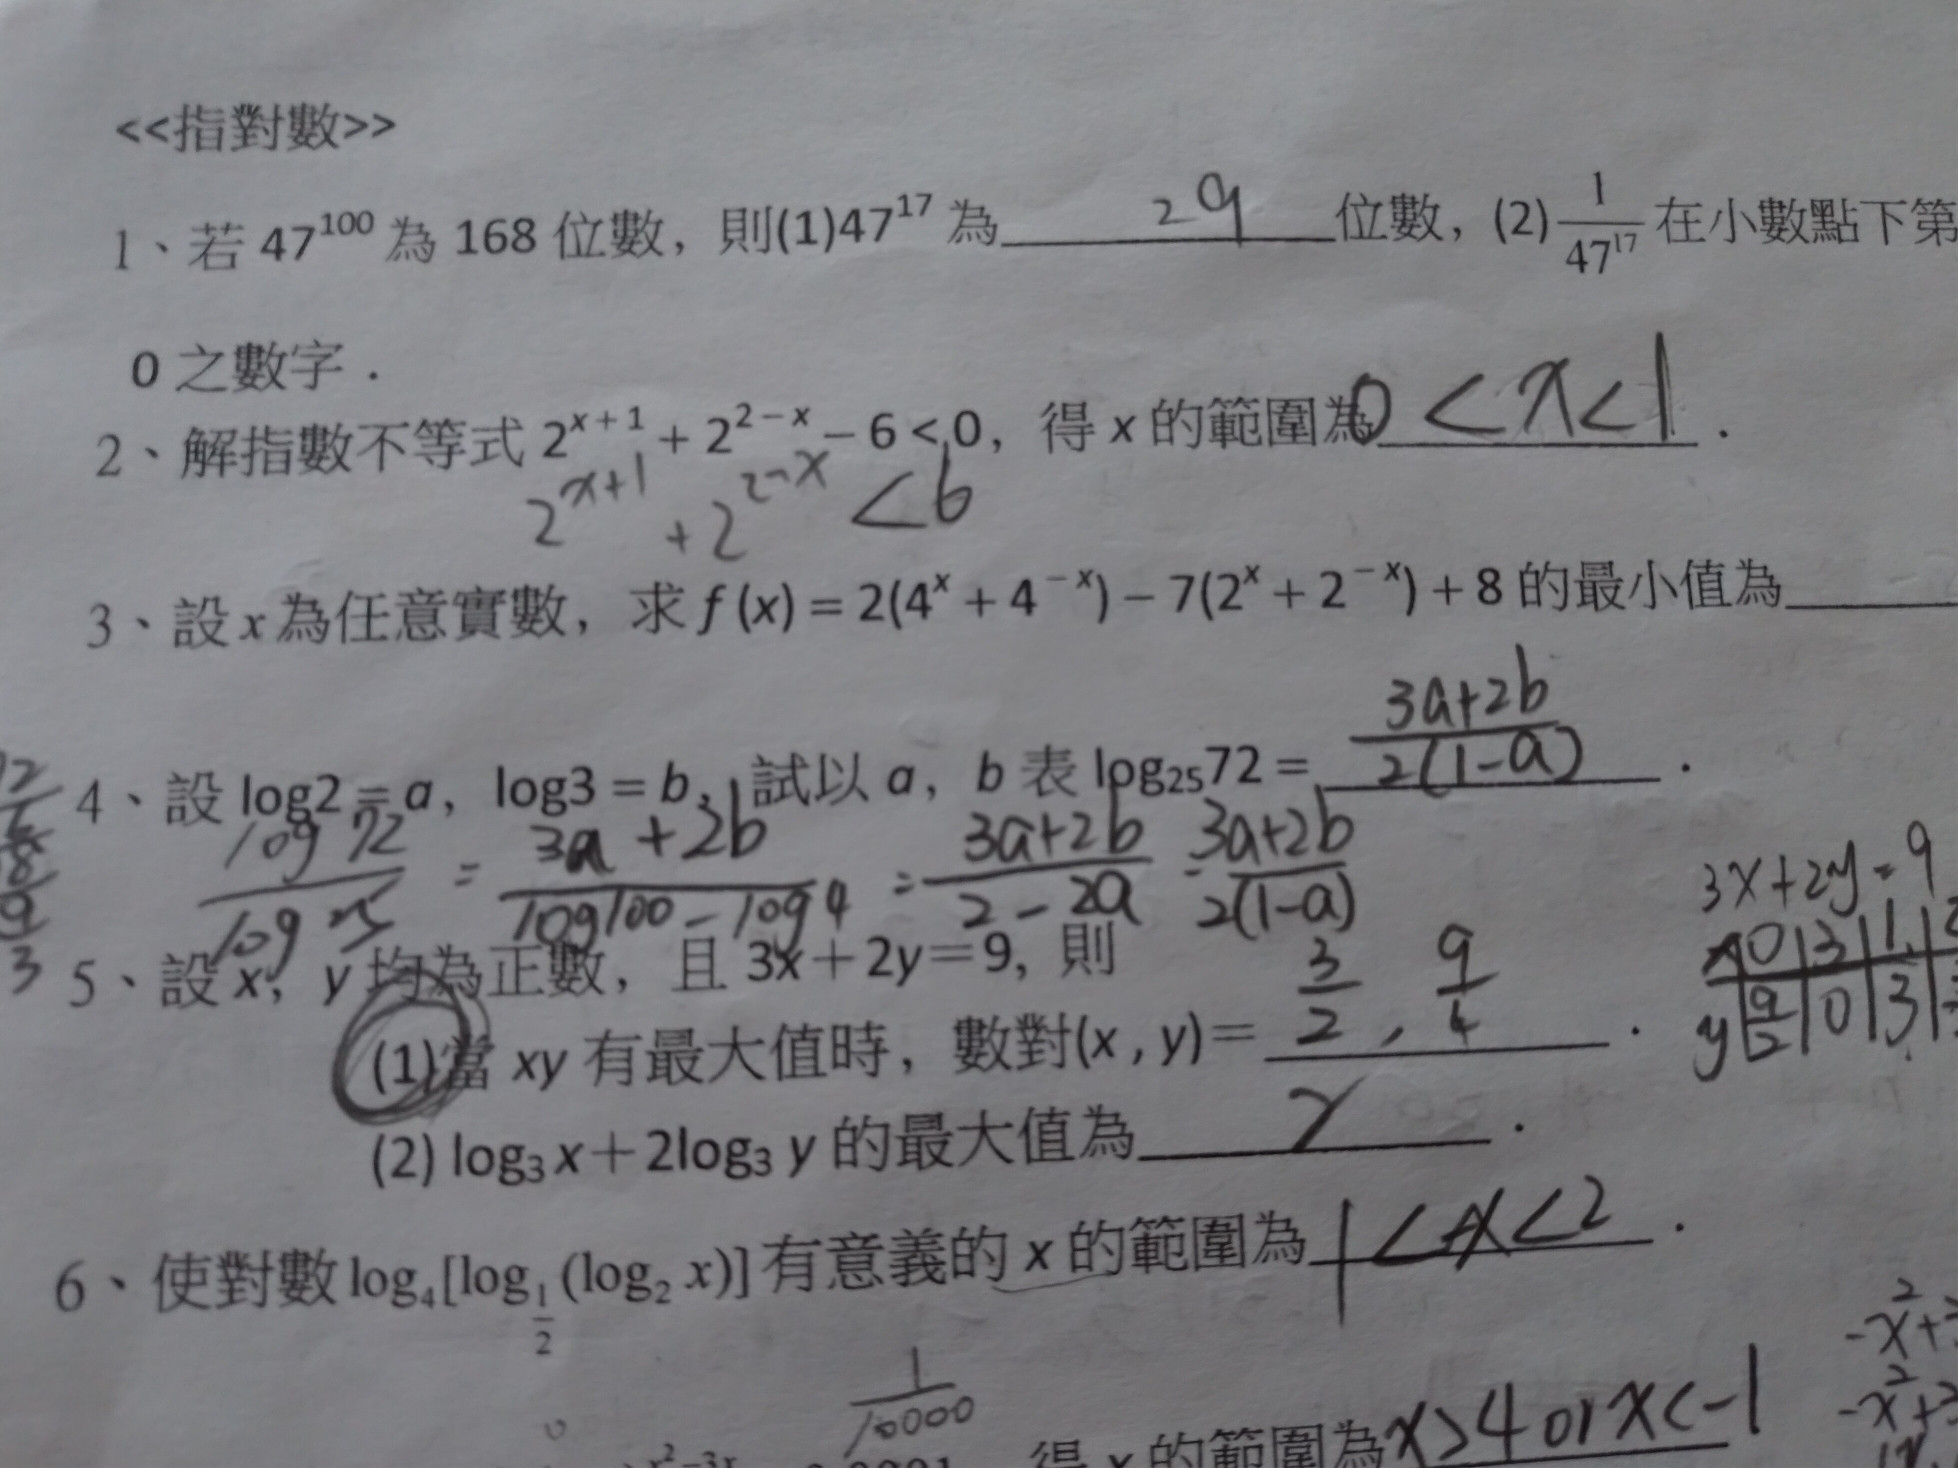 <<指對數>>
1、若 47^100 為 168 位數，則(1)47^17 為 29 位數，(2) 1/47^17 在小數點下第
0 之數字．
2、解指數不等式 2^(x+1) + 2^(2-x) - 6 < 0，得 x 的範圍為 0 < x < 1 .
2^(x+1) + 2^(2-x) < 6
3、設 x 為任意實數，求 f (x) = 2(4^x + 4^-x) - 7(2^x + 2^-x) + 8 的最小值為
4、設 log2 = a，log3 = b，試以 a，b 表 log₂₅72 = (3a+2b)/(2(1-a)) .
log 72/log 25 = (3a + 2b)/(log100 - log 4) = (3a+2b)/(2 - 2a) = (3a+2b)/(2(1-a))
3x+2y=9
5、設 x，y 均為正數，且 3x＋2y＝9，則
x 0 3 1
y 9/2 0 3
(1)當 xy 有最大值時，數對(x , y)＝ 3/2 , 9/4 .
(2) log₃ x＋2log₃ y 的最大值為 .
6、使對數 log₄[log_(1/2) (log₂ x)] 有意義的 x 的範圍為 1 < x < 2 .
1/10000
得 x 的範圍為 x>4 or x<-1